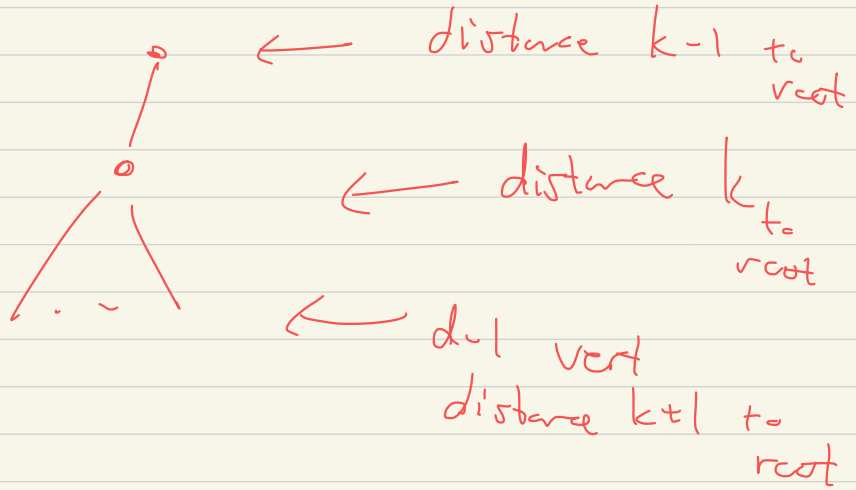 distance k-1 to
root
distance k
to
root
d-1 vert
distance k+1 to
root